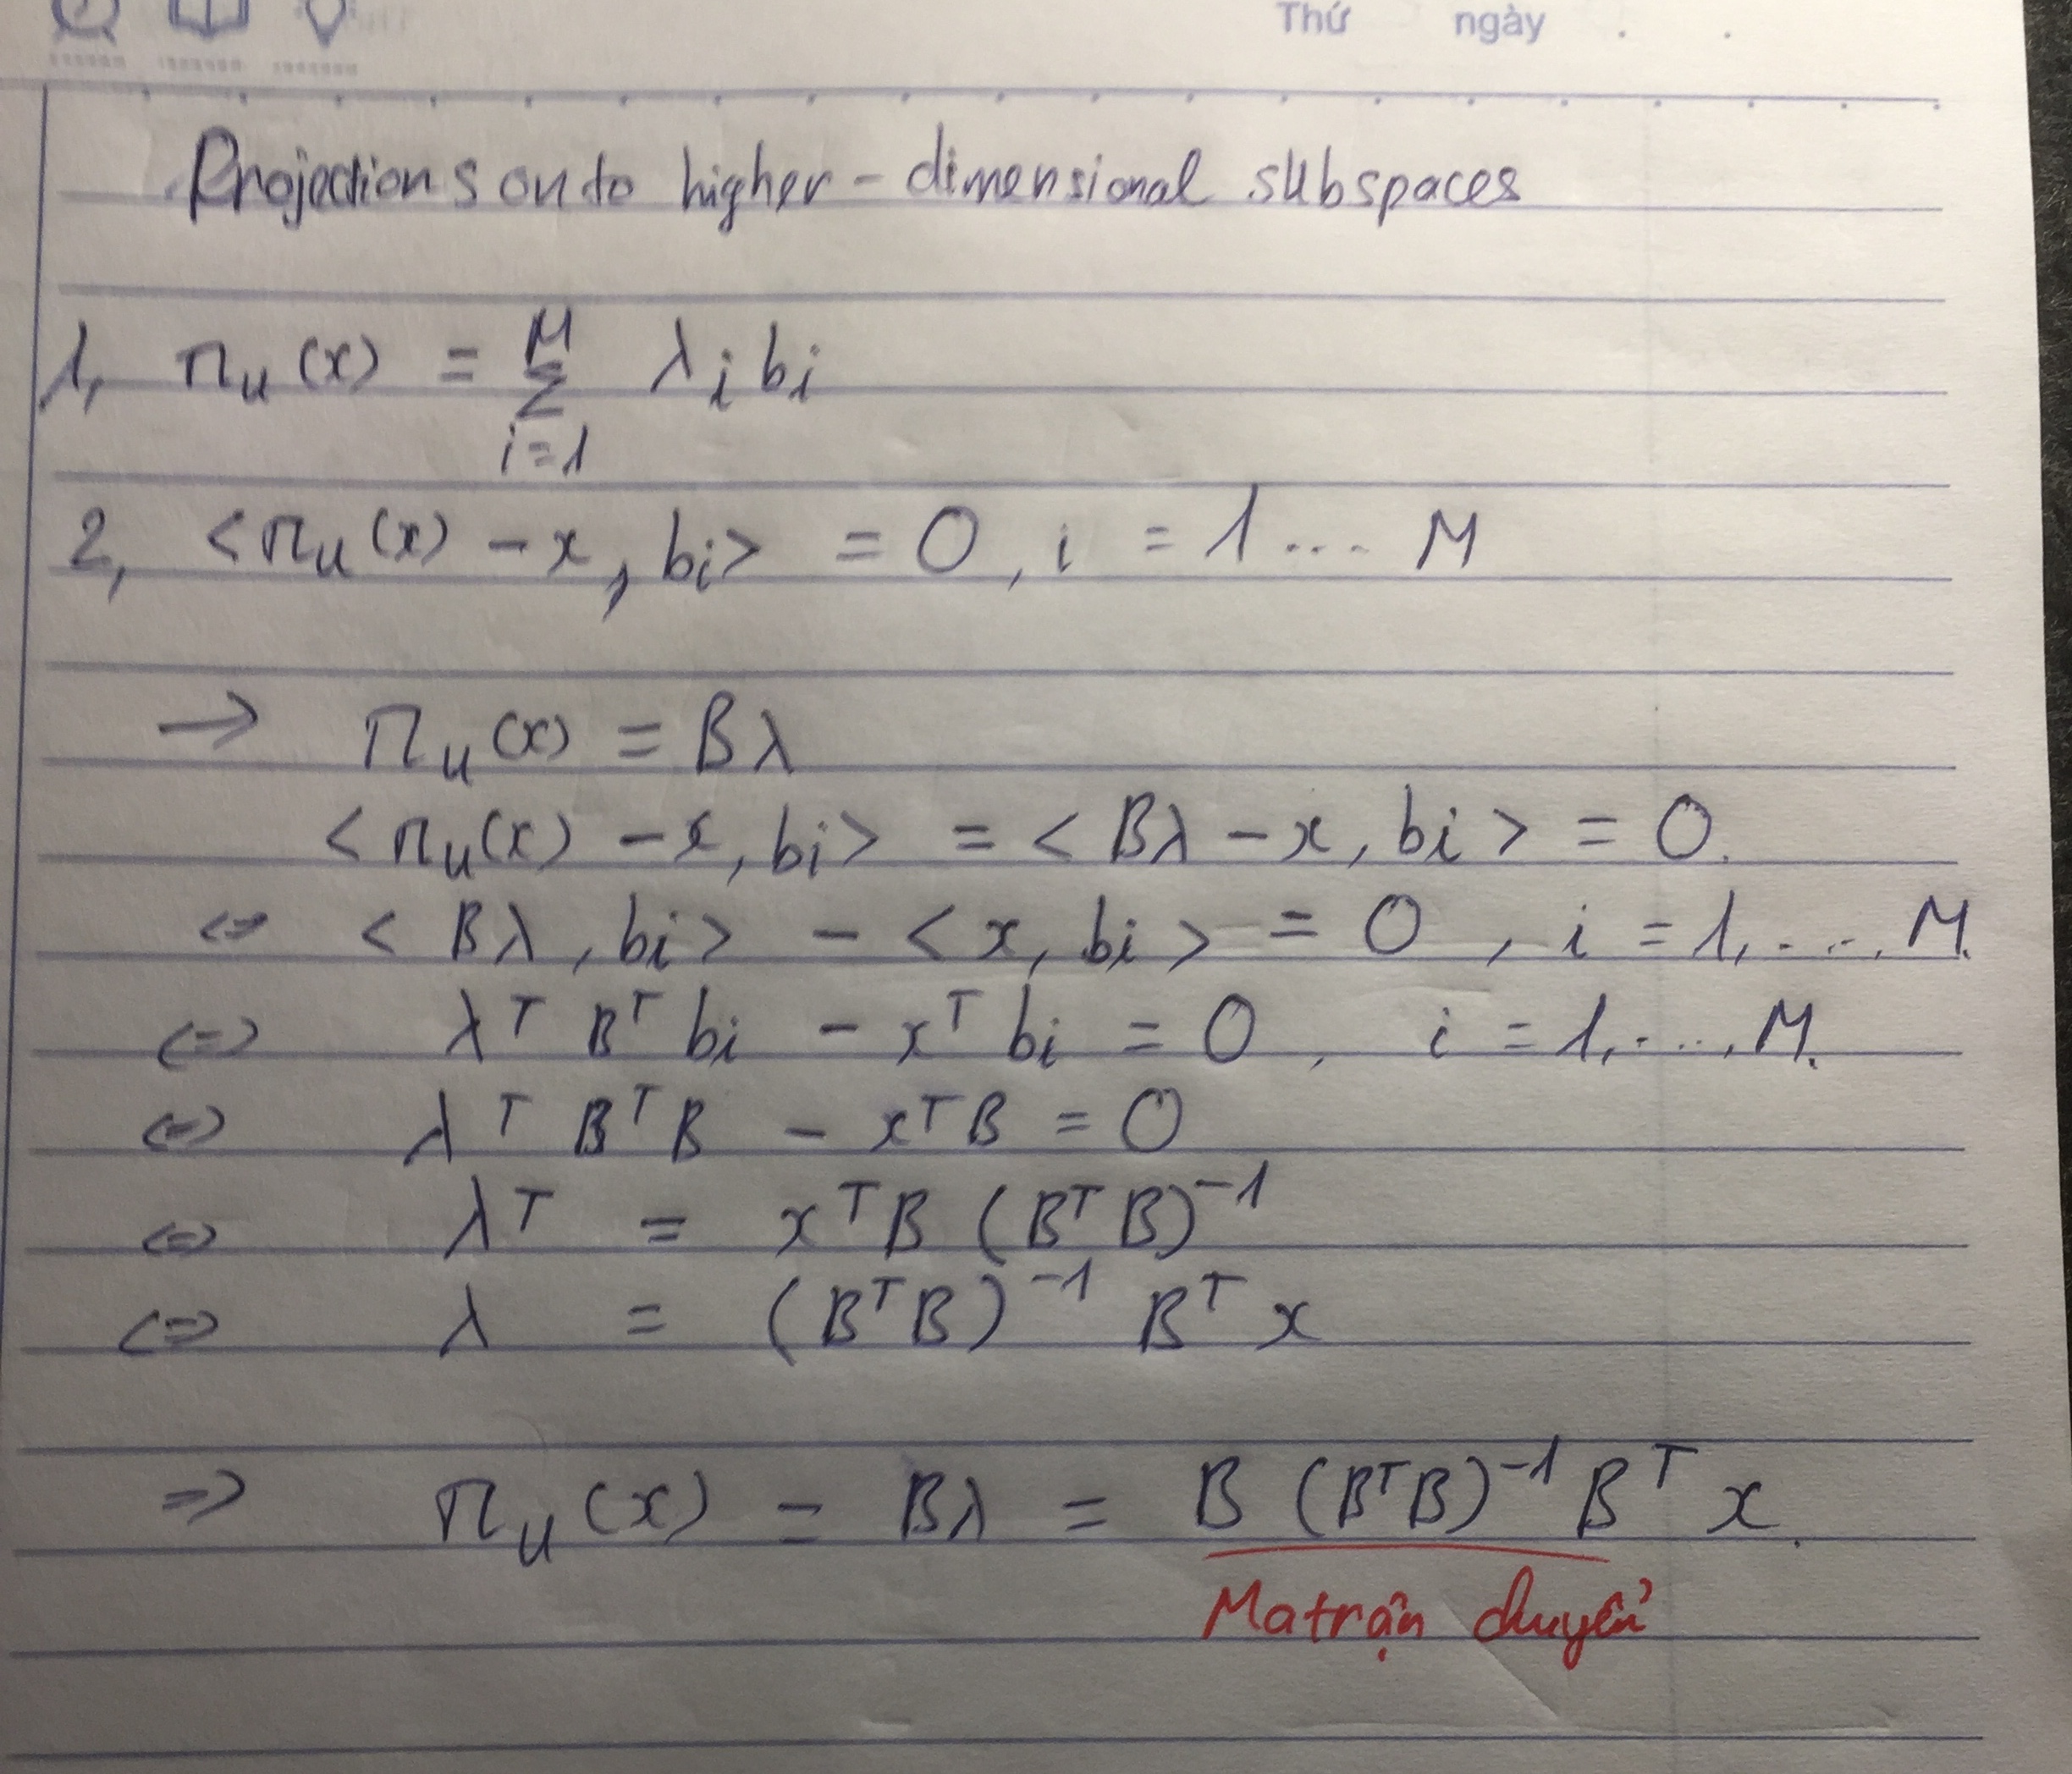 Thứ ngày . .
Projections onto higher-dimensional subspaces
1, πᵤ(x) = ∑ᵢ₌₁ᴹ λᵢ bᵢ
2, <πᵤ(x) - x, bᵢ> = 0, i = 1... M
→ πᵤ(x) = Bλ
<πᵤ(x) - x, bᵢ> = <Bλ - x, bᵢ> = 0.
<=> <Bλ, bᵢ> - <x, bᵢ> = 0, i = 1, ..., M.
<=> λᵀ Bᵀ bᵢ - xᵀ bᵢ = 0, i = 1, ..., M.
<=> λᵀ BᵀB - xᵀB = 0
<=> λᵀ = xᵀB (BᵀB)⁻¹
<=> λ = (BᵀB)⁻¹ Bᵀ x
=> πᵤ(x) = Bλ = B (BᵀB)⁻¹ Bᵀ x.
Ma trận chuyển